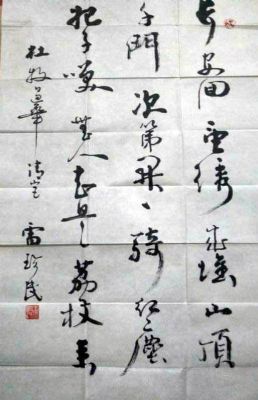 長安回望繡成堆山頂
千門次第開一騎紅塵
妃子笑無人知是荔枝来
杜牧過華清宮 雷珍民